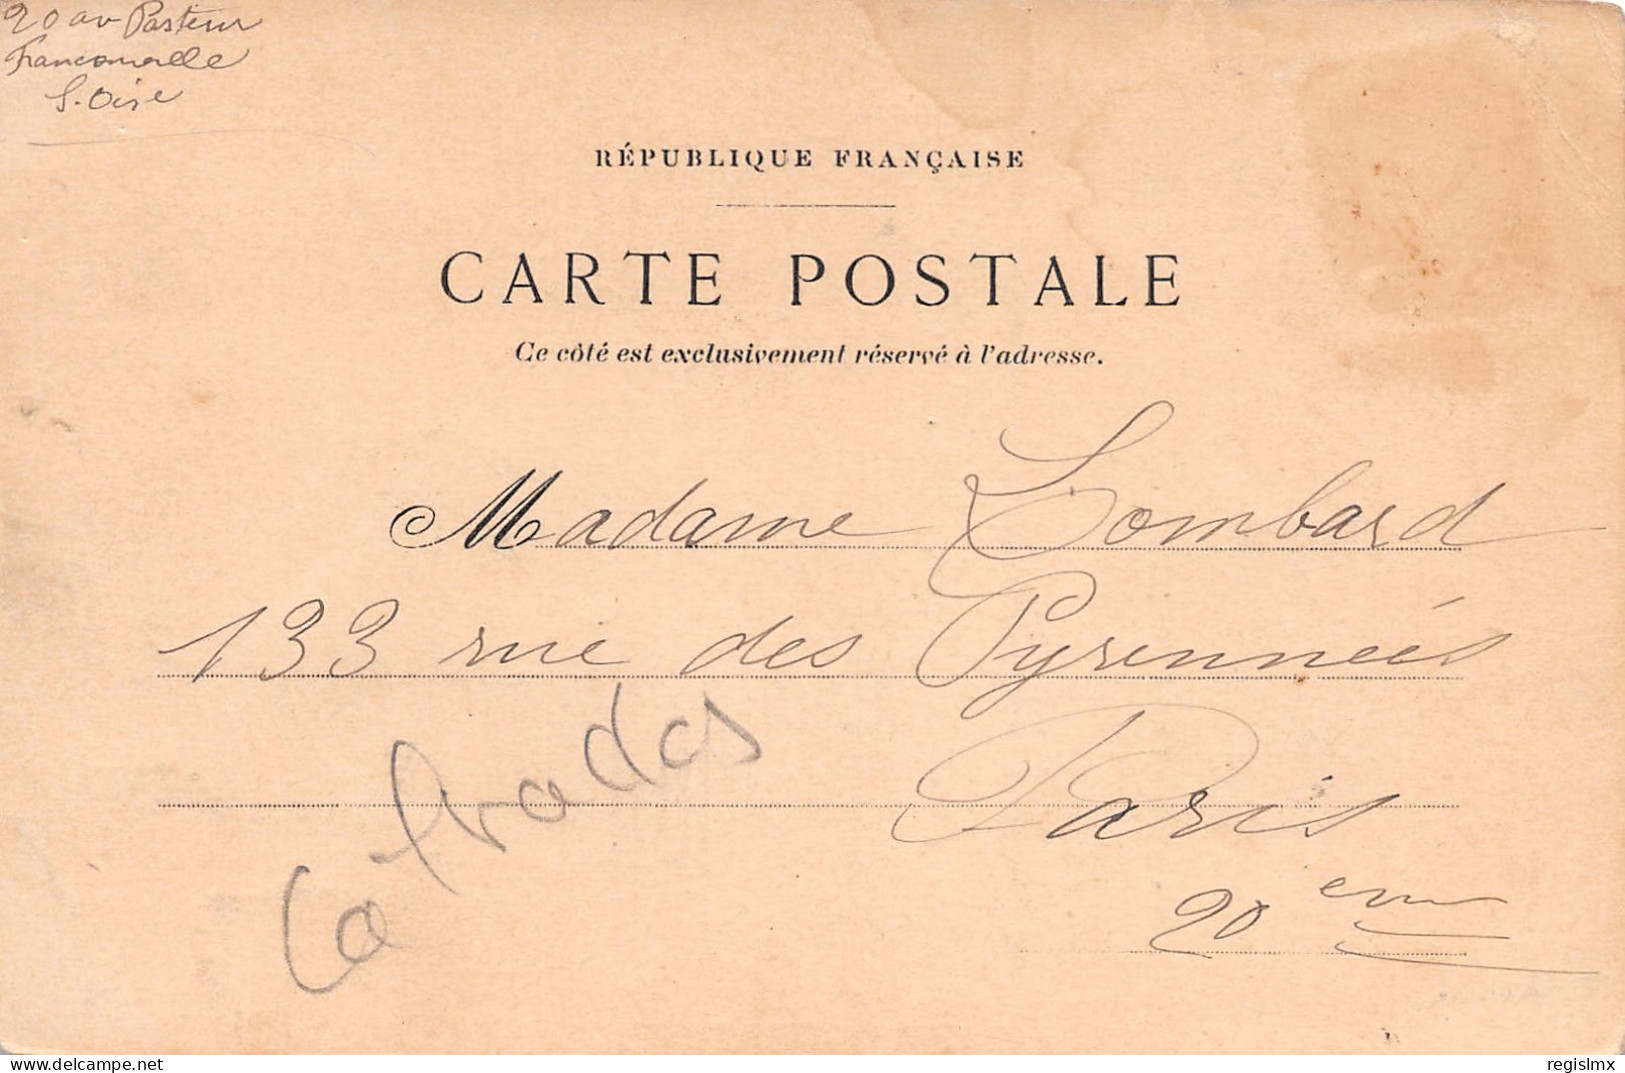 20 av Pasteur
Franconville
S. Oise
RÉPUBLIQUE FRANÇAISE
CARTE POSTALE
Ce côté est exclusivement réservé à l'adresse.
Madame Lombard
133 rue des Pyrennées
Paris
20 eme
delcampe.net
regislmx